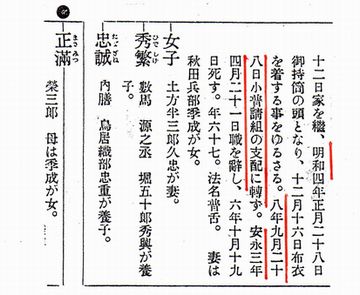 十二日家を繼、明和四年正月二十八日
御持筒の頭となり、十二月十六日布衣
を着する事をゆるさる。八年九月二十
八日小普請組の支配に轉ず。安永三年
四月二十一日職を辭し、六年十月十九
日死す。年六十七。法名普舌。 妻は
秋田兵部季成が女。
女子 土方半三郎久忠が妻。
秀繁 ひでしげ 數馬 源之丞 堀五十郎秀興が養
子。
忠誠 たゞざね 內膳 鳥居織部忠重が養子。
正滿 まさみつ 榮三郎 母は季成が女。